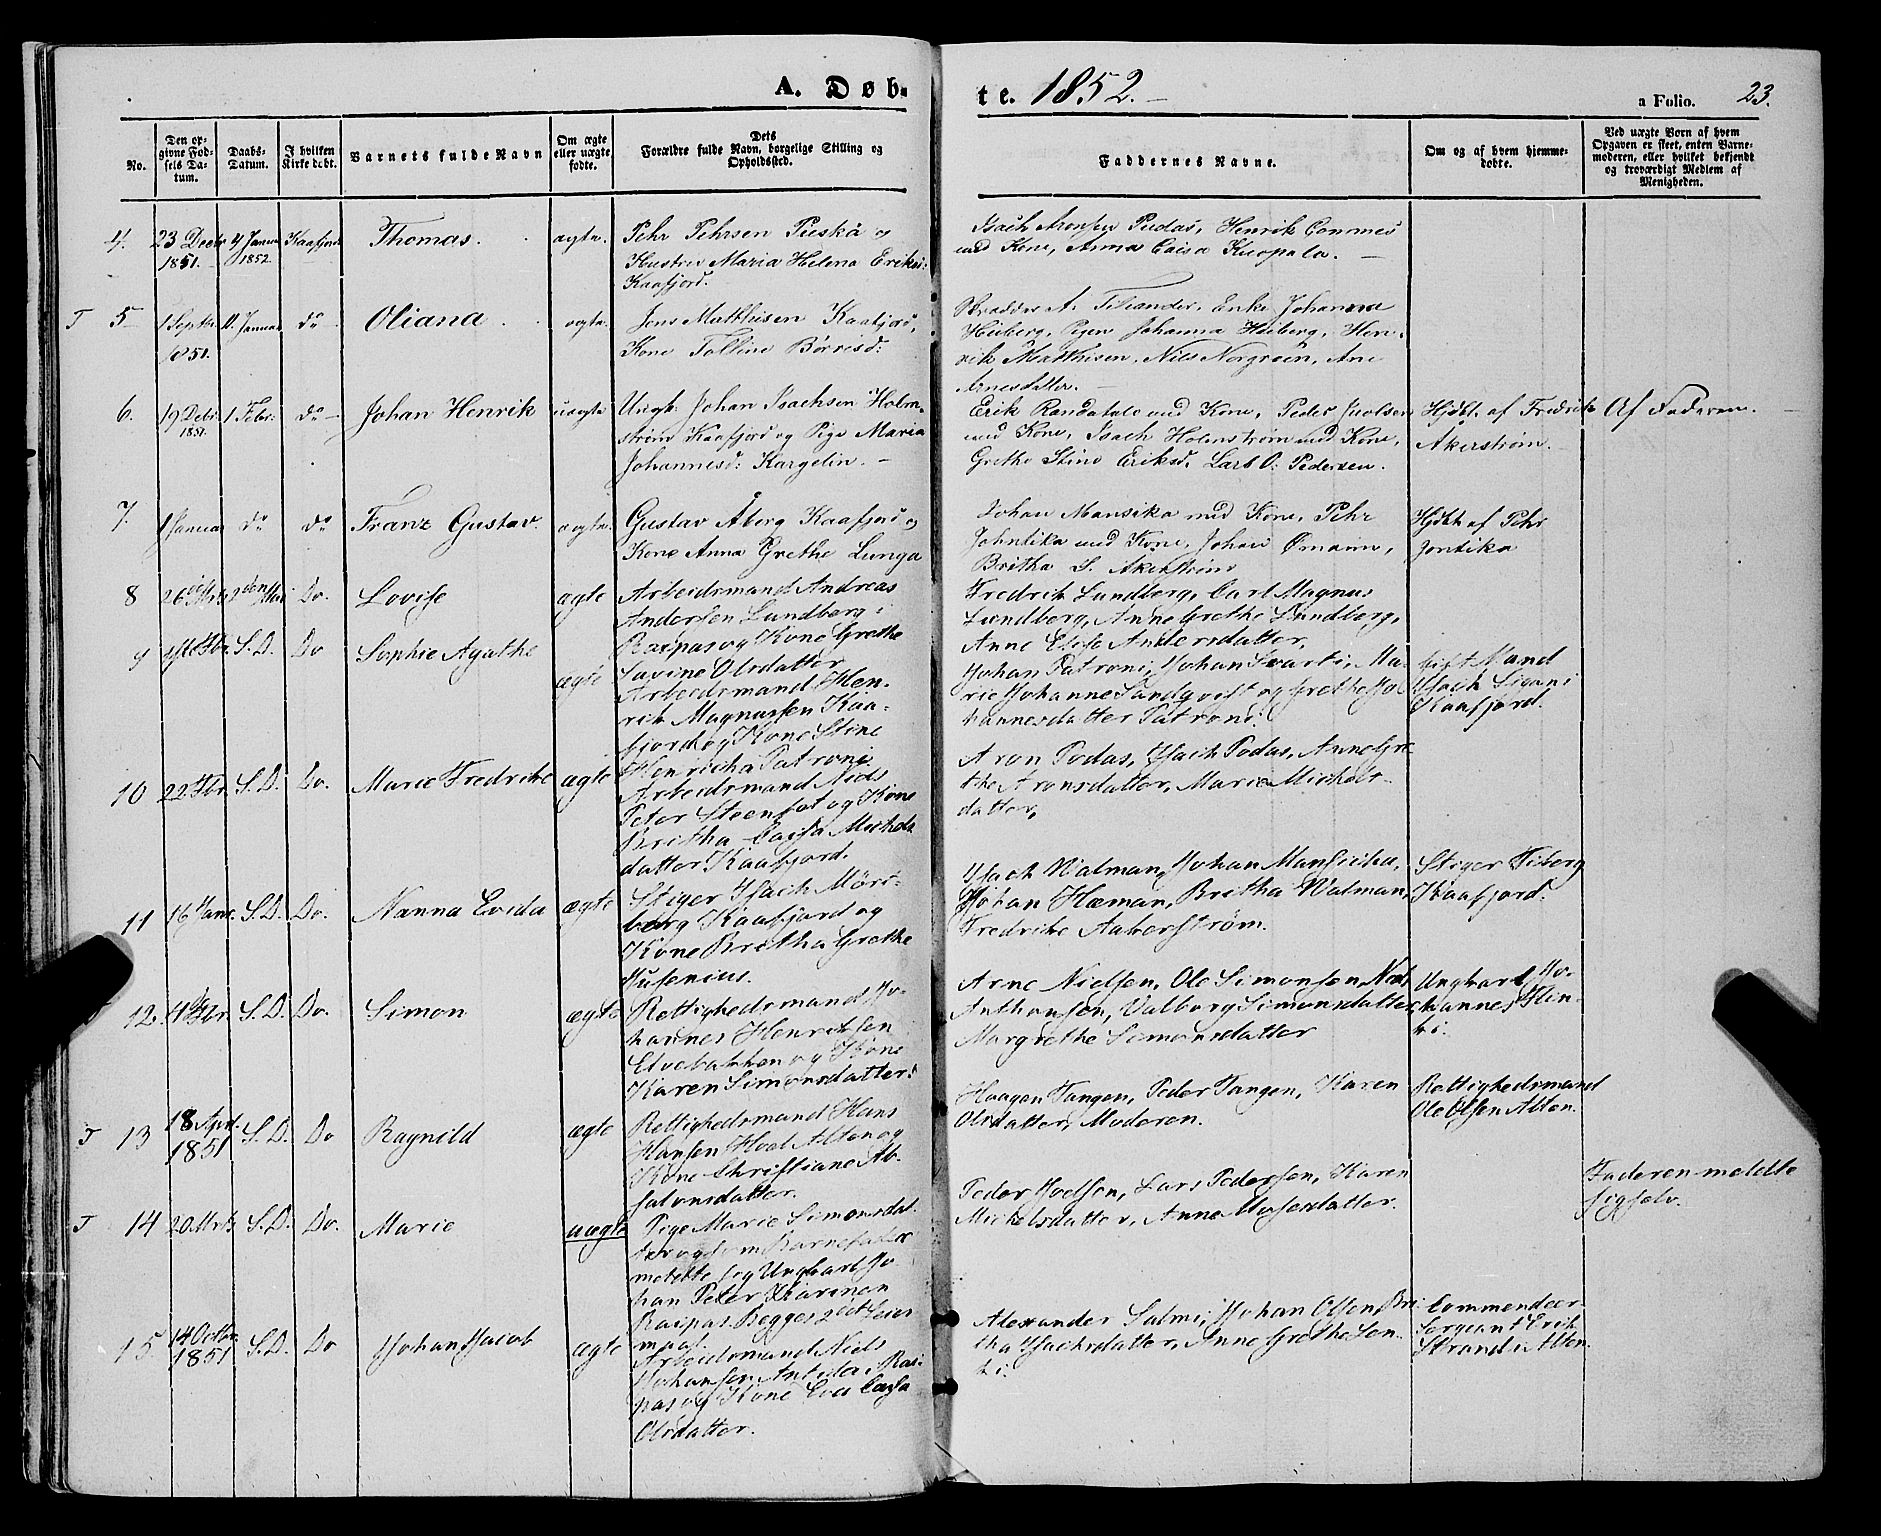 A. Døb-
te. 1852.
a Folio. 23.
No.
Den op-
givne Fød-
sels Da-
tum.
Daabs-
Datum.
I hvilken
Kirke døbt.
Barnets fulde Navn
Om ægte
eller uægte
fødte.
Dets
Forældre fulde Navn, borgelige Stilling og
Opholdssted.
Faddernes Navne.
Om og af hvem hjemme-
døbte.
Ved uægte Børn af hvem
Opgaven er skeet, enten Barne-
moderen, eller hvilket bekjendt
og troværdigt Medlem af
Menigheden.
4. 23 Decbr 4 Januar Kaafjord Thomas. ægte. Pehr Pehrsen Pieskä og
1851. 1852 Hustru Maria Helena Eriksd:
Kaafjord.
Isach Aronsen Pudas, Henrik Commes
med Kone, Anna Caisa Kuopala.
T 5 1 Septbr 11. Januar do Oliana ægte. Jens Mathisen Kaafjord,
1851. Kone Tolline Børresd:
Skrædder A. Fileander, Enke Johanna
Heiberg, Pigen Johanna Heiberg, Hen-
rik Matthisen, Nils Norgreen, Ane
Arnesdatter.
6. 19 Debr 1 Febr: do Johan Henrik uægte Ungk. Johan Isachsen Holm-
1851. strøm Kaafjord og Pige Maria
Johannesd: Kargelin.
Erik Randatalo med Kone, Peder Joelsen
med Kone, Isach Holmstrøm med Kone,
Grethe Stine Eriksd. Lars O. Pedersen.
Hjdbt. af Fredrik
Åkerstrøm.
Af Faderen.
7. 1 Januar do do Franz Gustav. ægte. Gustav Åberg Kaafjord og
Kone Anna Grethe Lunga
Johan Mansika med Kone, Pehr
Johntika med Kone, Johan Ømann,
Britha S. Åkerstrøm
Hjdbt af Pehr
Jontika
8 26de Mrts 2den Mai Do. Lovise ægte Arbeidsmand Andreas
Andersen Lundberg i
Raipas og Kone Grethe
Savine Olsdatter
Fredrik Lundberg, Carl Magnus
Lundberg, Anne Grethe Lundberg,
Anne Elise Andersdatter,
9 S.D. Do Sophie Agathe ægte Arbeidsmand Hen-
rich Magnussen Kaa-
fjord og Kone Stine
Henricha Patroni
Johan Patroni, Johan Svarti, Ma-
rie Johanne Sandqvist og Grethe Jo-
hannesdatter Patroni.
Gift Mand
Isach Sigari
Kaafjord.
10 22 Fbr. S.D. Do. Marie Fredrike ægte Arbeidsmand Niels
Peter Steensot og Kone
Britha Caisa Michels
datter Kaafjord.
Aron Podas, Isach Podas, Anne Gre
the Aronsdatter, Marie Michels-
datter,
11 16 Janr. S.D. Do. Nanna Evida ægte Stiger Isach Möri-
berg Kaafjord og
Kone Bretha Grethe
Kusenius.
Isach Walman, Johan Mansicka,
Johan Hæman, Bretha Walman,
Fredrike Aaberstrøm.
Stiger Fiberg
Kaafjord.
12. 4de Fbr. S.D. Do. Simon ægte Rettighedsmand Jo-
hannes Henriksen
Elvebakken og Kone
Karen Simonsdatter.
Arne Nielsen, Ole Simonsen, Niels
Anthonsen, Valborg Simonsdatter,
Margrethe Simonsdatter
Ungkarl Jo-
hannes Hen-
ki.
T 13 18 Apr. S.D. Do Ragnild ægte Rettighedsmand Hans
1851 Hansen Hoel Alten og
Kone Christiane Ab-
salonsdatter.
Haagen Tangen, Peder Tangen, Karen
Olsdatter, Moderen.
Rettighedsmand
Ole Olsen Alten.
T 14 20 Mrts S.D. Do. Marie uægte Pige Marie Simonsdat-
ter og som Barnefader
meldte sig Ungkarl Jo-
han Peter Karinen
Raipas. Begges 2det Leier
maal.
Peder Joelsen, Lars Pedersen, Karen
Michelsdatter, Anne Mosesdatter.
Faderen meldte
sig selv.
15. 14 Octbr. S.D. Do Johan Jacob ægte Arbeidsmand Niels
1851 Johansen Antila, Rai-
pas og Kone Eva Caysa
Olsdatter.
Alexander Salmi, Johan Olsen, Bri-
tha Isachsdatter, Anne Grethe Jon-
ki.
Commandeer
Sergeant Erik
Strand i Alten.